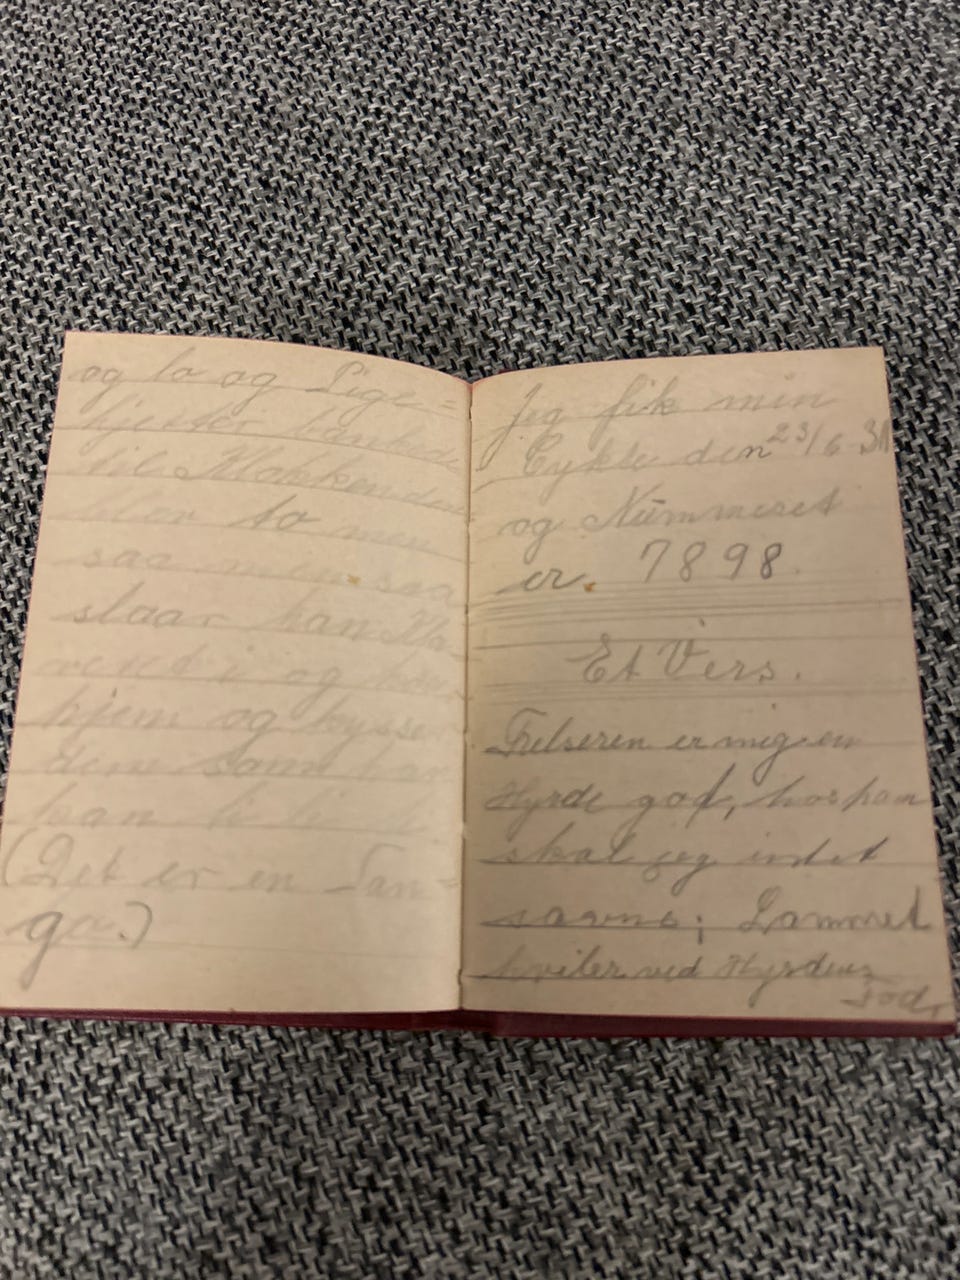 og lo og Pige=
hjerter bankede
til Klokken den
blev to men
saa men saa
slaar han Kla-
veret i og
hjem og kysser
som han
kan li li li
(Det er en San=
ga.)
Jeg fik min
Cykle den 23/6-31
og Nummeret
er. 7898.
Et Vers.
Frelseren er mig en
Hyrde god, hos ham
skal jeg intet
savne; Lammet
hviler ved Hyrdens
Fod,